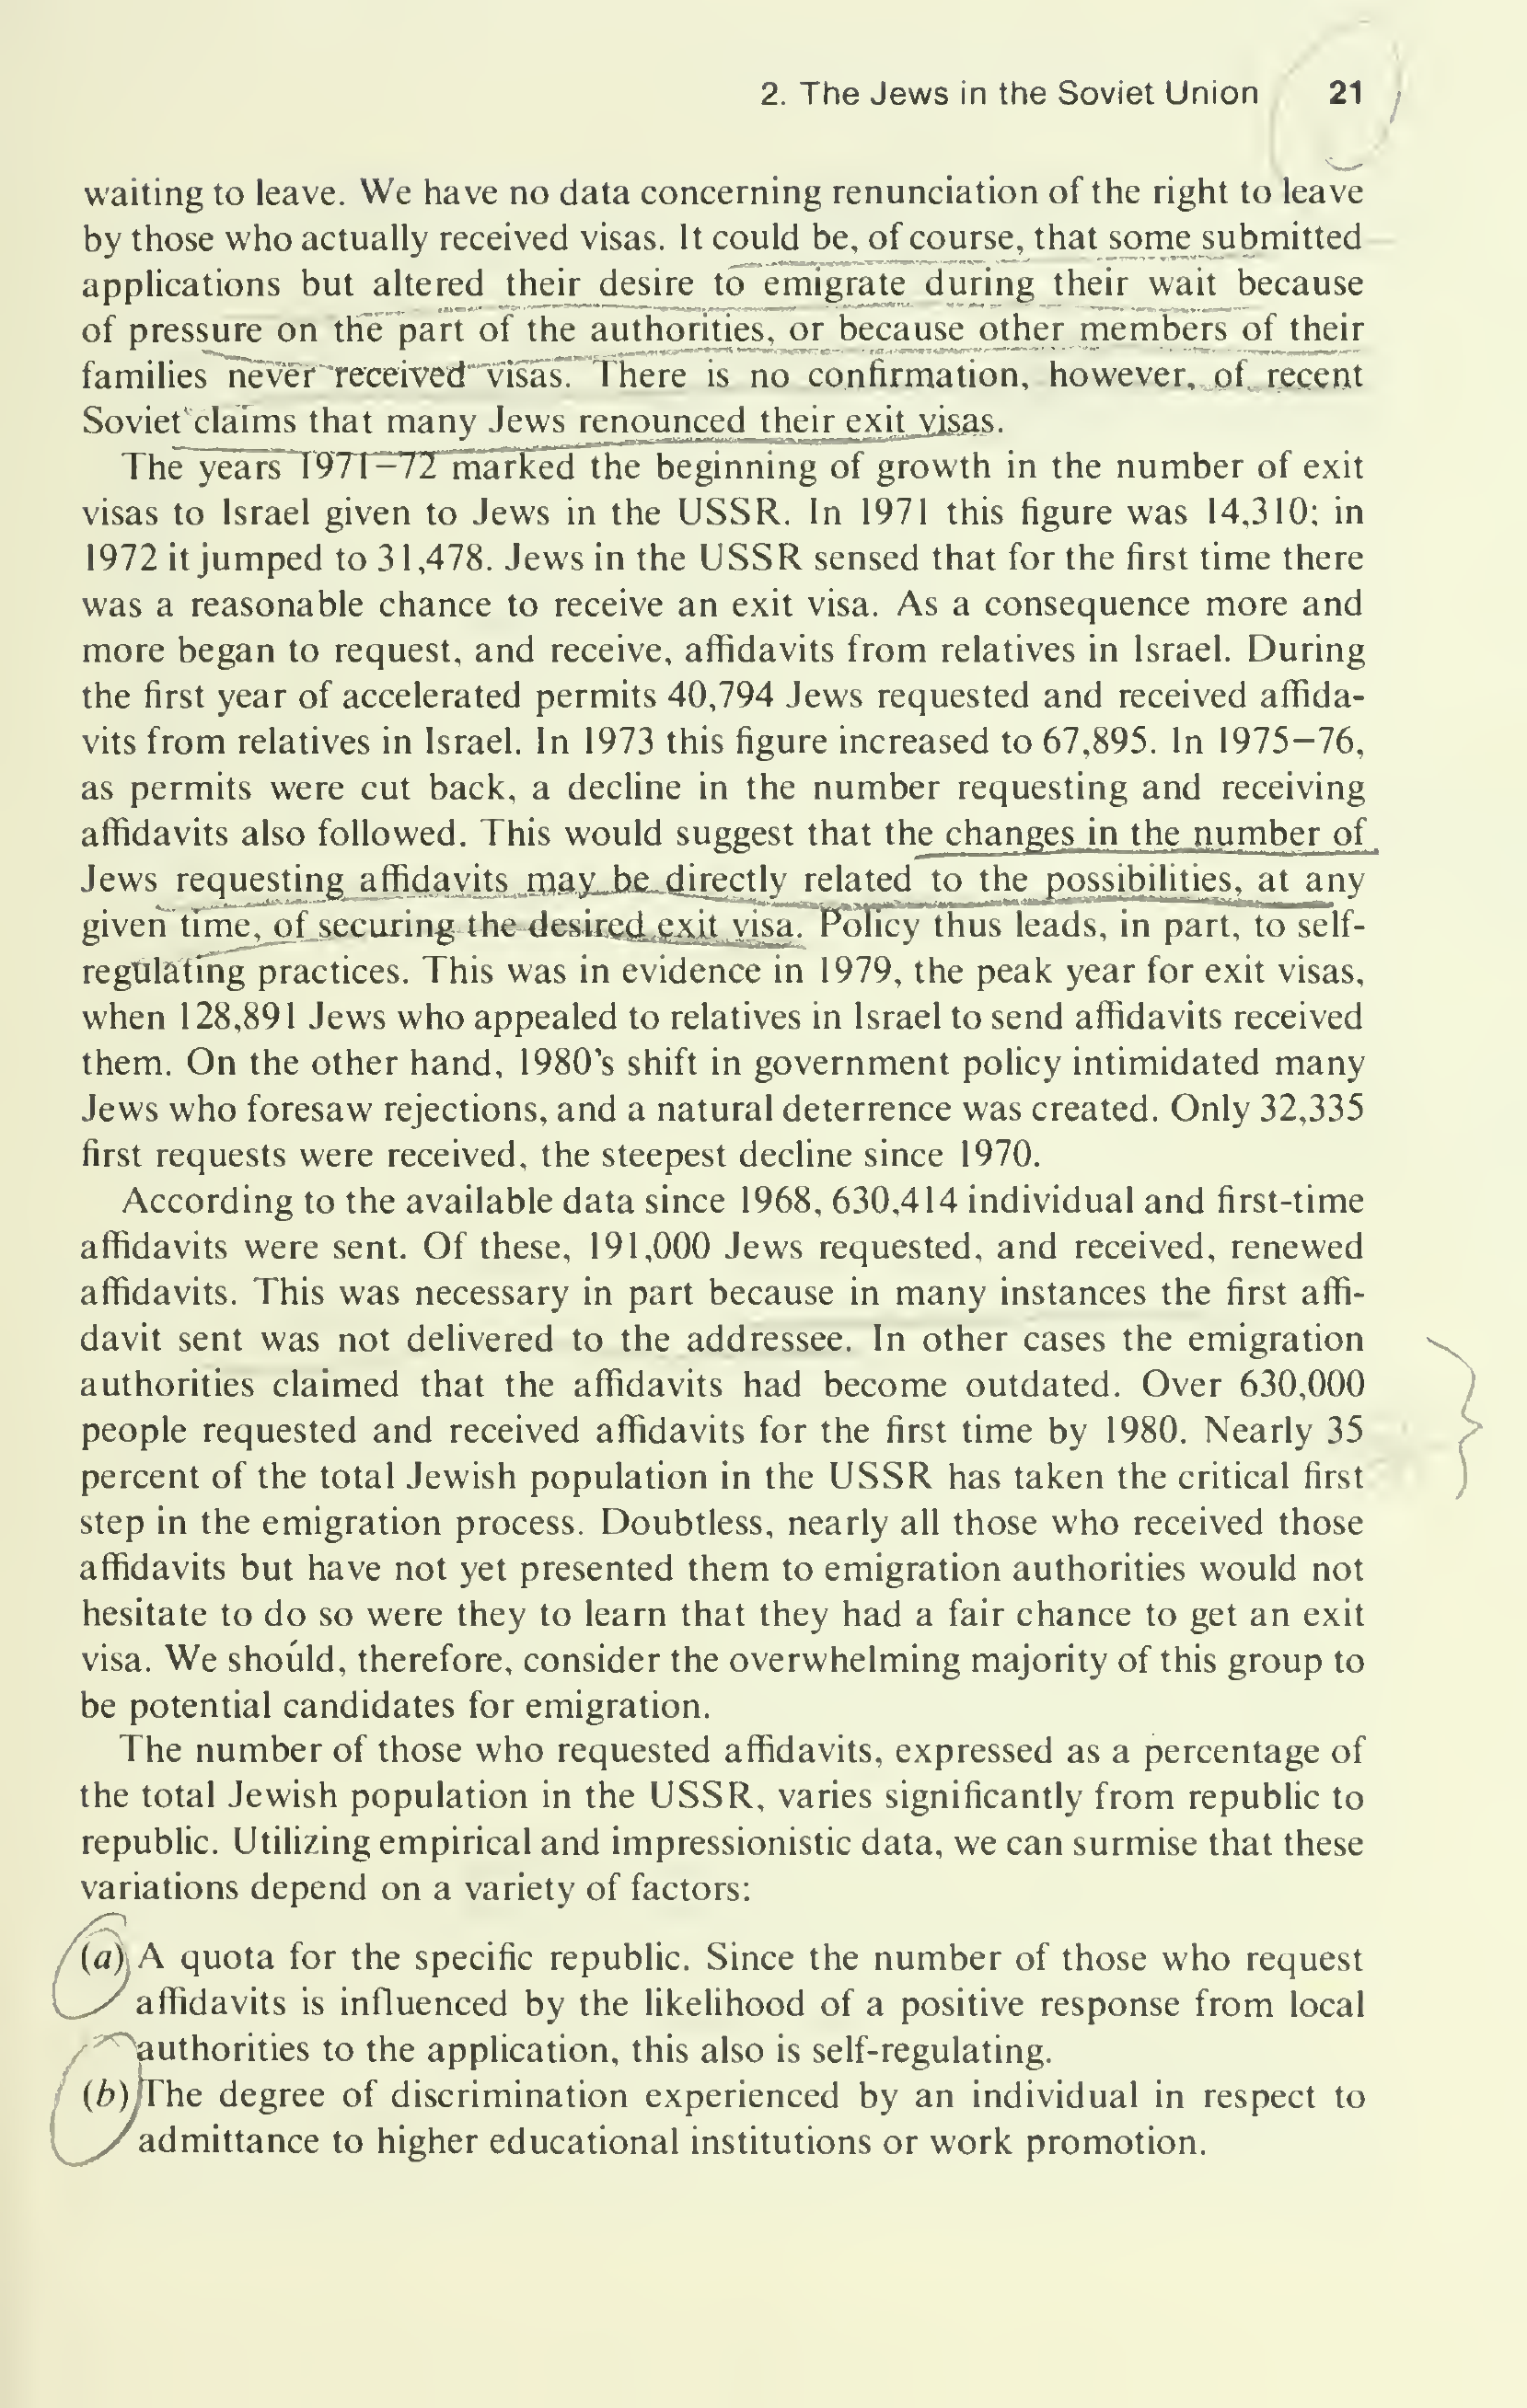 2. The Jews in the Soviet Union 21
waiting to leave. We have no data concerning renunciation of the right to leave
by those who actually received visas. It could be, of course, that some submitted
applications but altered their desire to emigrate during their wait because
of pressure on the part of the authorities, or because other members of their
families never received visas. There is no confirmation, however, of recent
Soviet claims that many Jews renounced their exit visas.
The years 1971–72 marked the beginning of growth in the number of exit
visas to Israel given to Jews in the USSR. In 1971 this figure was 14,310; in
1972 it jumped to 31,478. Jews in the USSR sensed that for the first time there
was a reasonable chance to receive an exit visa. As a consequence more and
more began to request, and receive, affidavits from relatives in Israel. During
the first year of accelerated permits 40,794 Jews requested and received affida-
vits from relatives in Israel. In 1973 this figure increased to 67,895. In 1975–76,
as permits were cut back, a decline in the number requesting and receiving
affidavits also followed. This would suggest that the changes in the number of
Jews requesting affidavits may be directly related to the possibilities, at any
given time, of securing the desired exit visa. Policy thus leads, in part, to self-
regulating practices. This was in evidence in 1979, the peak year for exit visas,
when 128,891 Jews who appealed to relatives in Israel to send affidavits received
them. On the other hand, 1980's shift in government policy intimidated many
Jews who foresaw rejections, and a natural deterrence was created. Only 32,335
first requests were received, the steepest decline since 1970.
According to the available data since 1968, 630,414 individual and first-time
affidavits were sent. Of these, 191,000 Jews requested, and received, renewed
affidavits. This was necessary in part because in many instances the first affi-
davit sent was not delivered to the addressee. In other cases the emigration
authorities claimed that the affidavits had become outdated. Over 630,000
people requested and received affidavits for the first time by 1980. Nearly 35
percent of the total Jewish population in the USSR has taken the critical first
step in the emigration process. Doubtless, nearly all those who received those
affidavits but have not yet presented them to emigration authorities would not
hesitate to do so were they to learn that they had a fair chance to get an exit
visa. We should, therefore, consider the overwhelming majority of this group to
be potential candidates for emigration.
The number of those who requested affidavits, expressed as a percentage of
the total Jewish population in the USSR, varies significantly from republic to
republic. Utilizing empirical and impressionistic data, we can surmise that these
variations depend on a variety of factors:
(a) A quota for the specific republic. Since the number of those who request
affidavits is influenced by the likelihood of a positive response from local
authorities to the application, this also is self-regulating.
(b) The degree of discrimination experienced by an individual in respect to
admittance to higher educational institutions or work promotion.